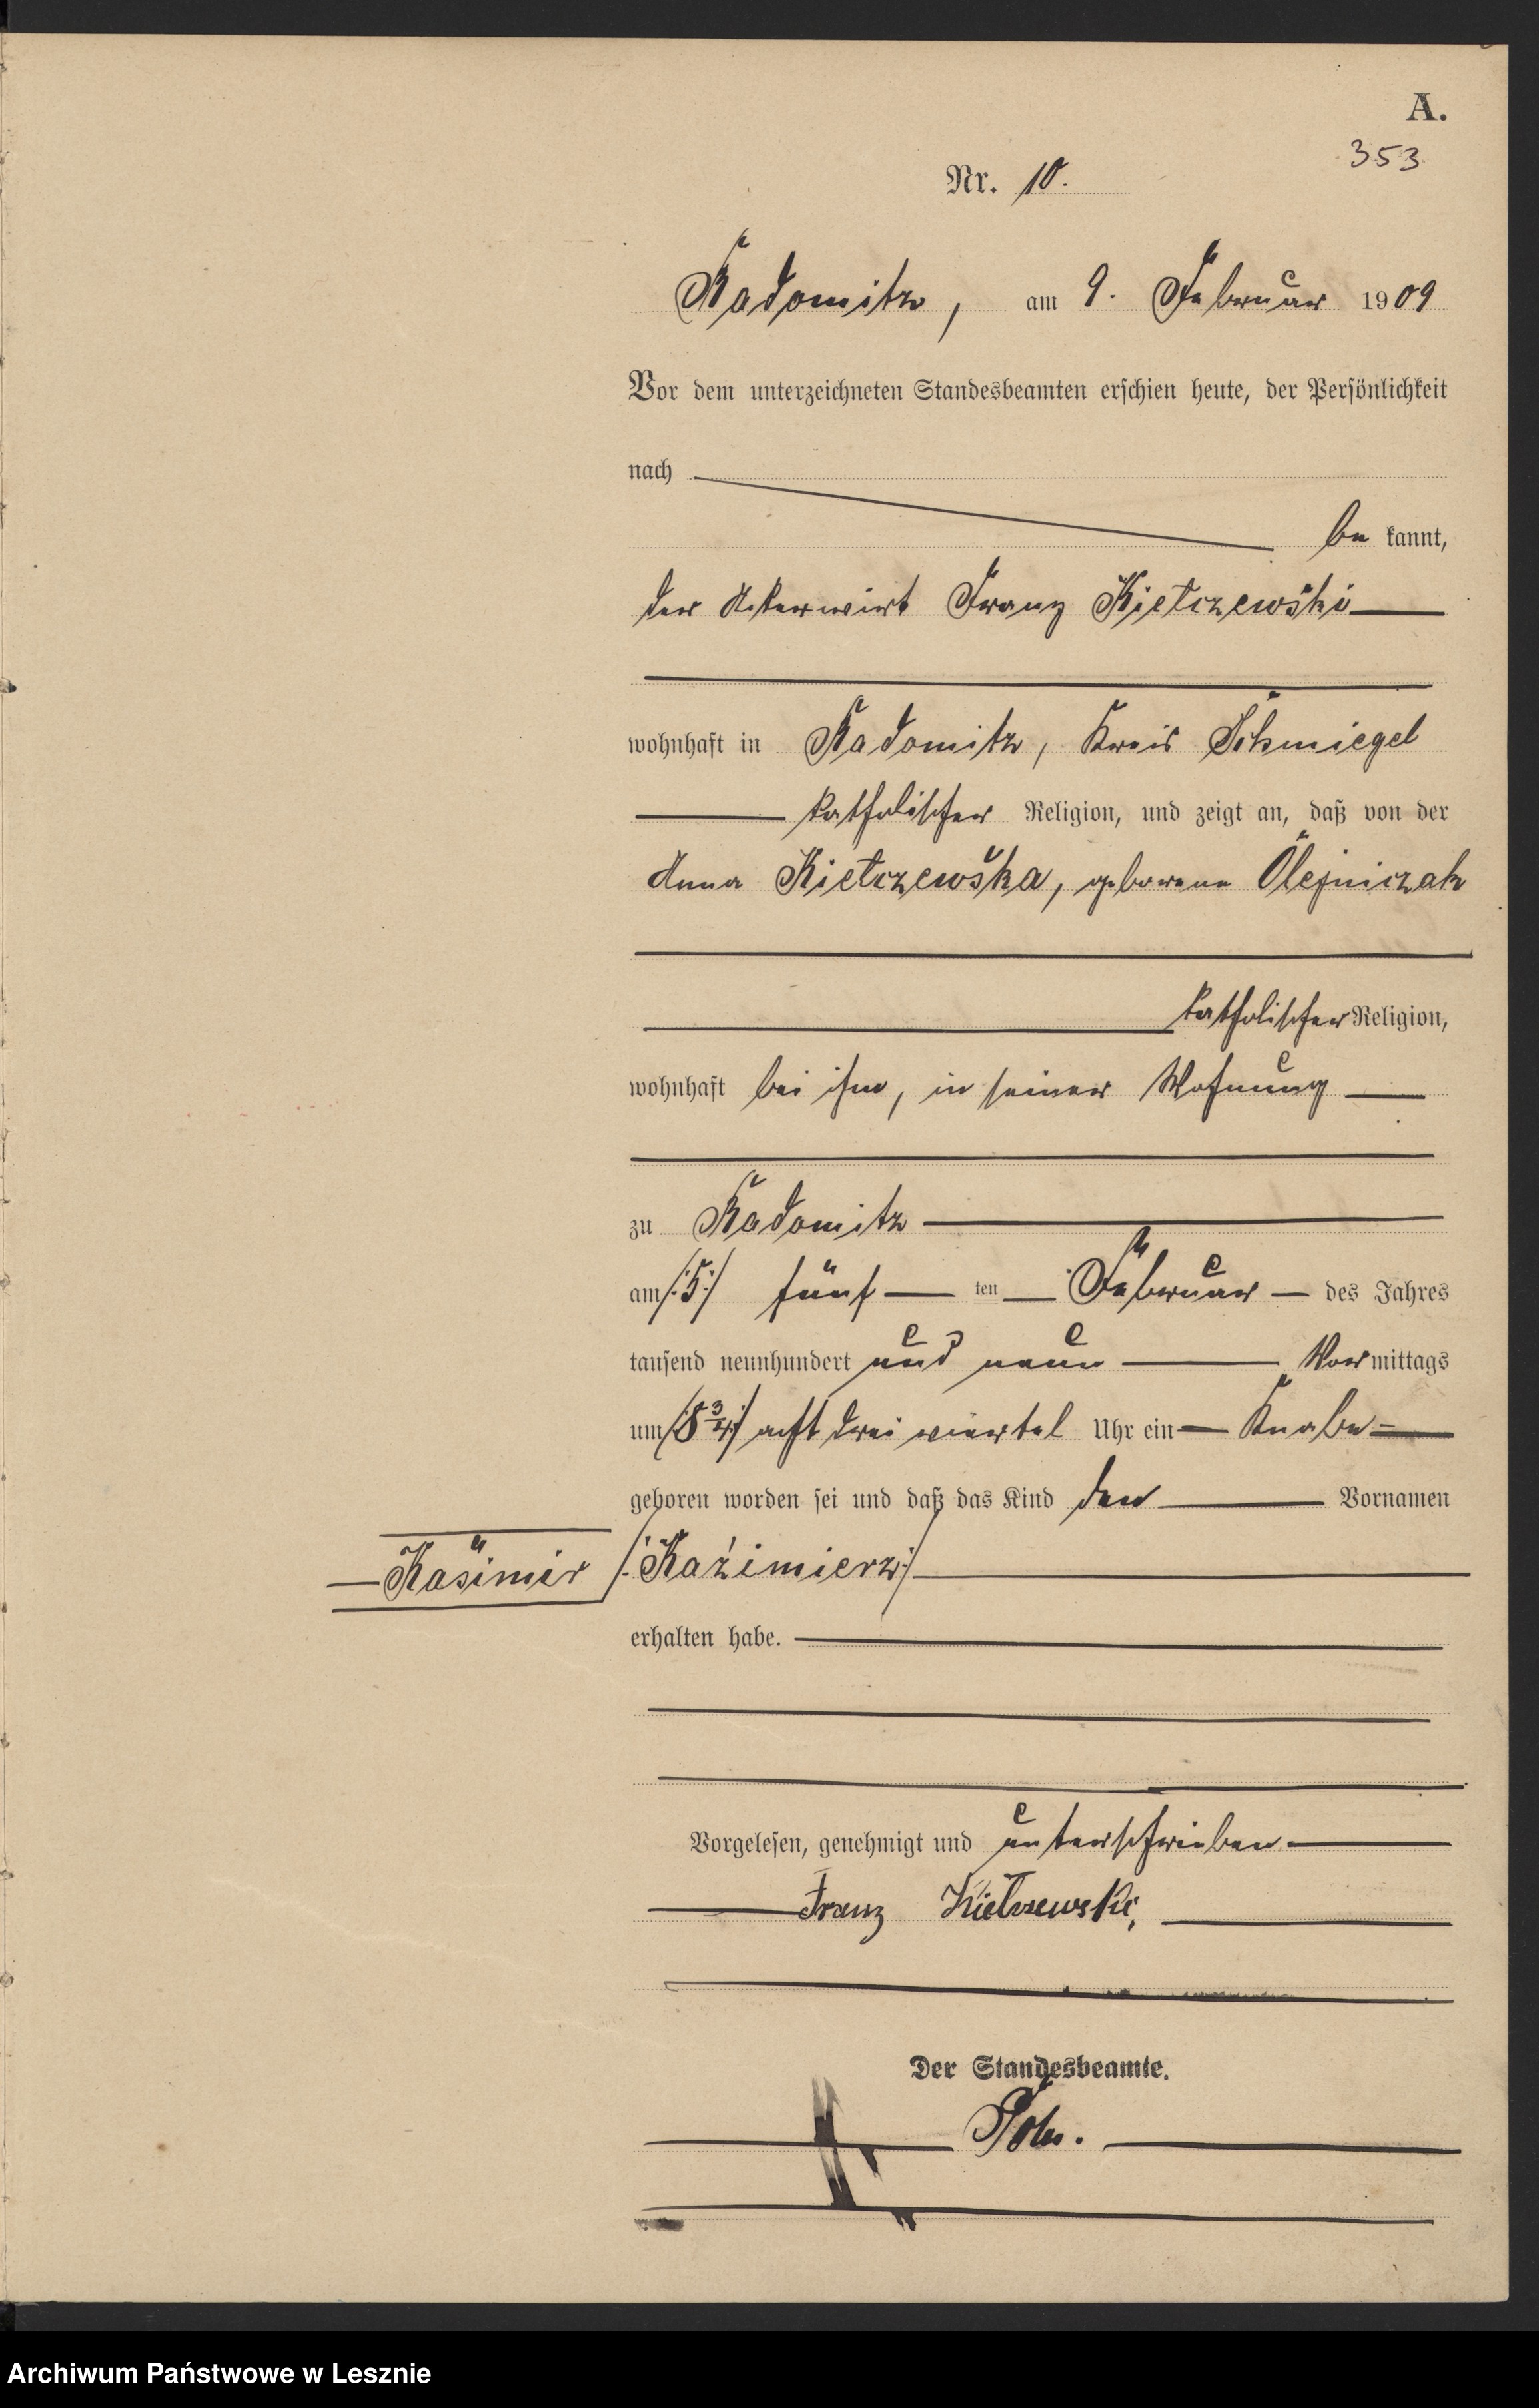 A.
353
Nr. 10.
Radomitz, am 9. Februar 1909
Vor dem unterzeichneten Standesbeamten erschien heute, der Persönlichkeit
nach
be kannt,
der Ackerwirt Franz Kiełczewski
wohnhaft in Radomitz, Kreis Schmiegel
katholischer Religion, und zeigt an, daß von der
Anna Kiełczewska, geborene Olejniczak
katholischer Religion,
wohnhaft bei ihm, in seiner Wohnung
zu Radomitz
am /:5:/ fünf ten Februar des Jahres
tausend neunhundert und neun Vormittags
um /:8 3/4:/ acht drei viertel Uhr ein Knabe
geboren worden sei und daß das Kind den Vornamen
Kasimir /:Kaźimierz:/
erhalten habe.
Vorgelesen, genehmigt und unterschrieben
Franz Kielczewski,
Der Standesbeamte.
Archiwum Państwowe w Lesznie